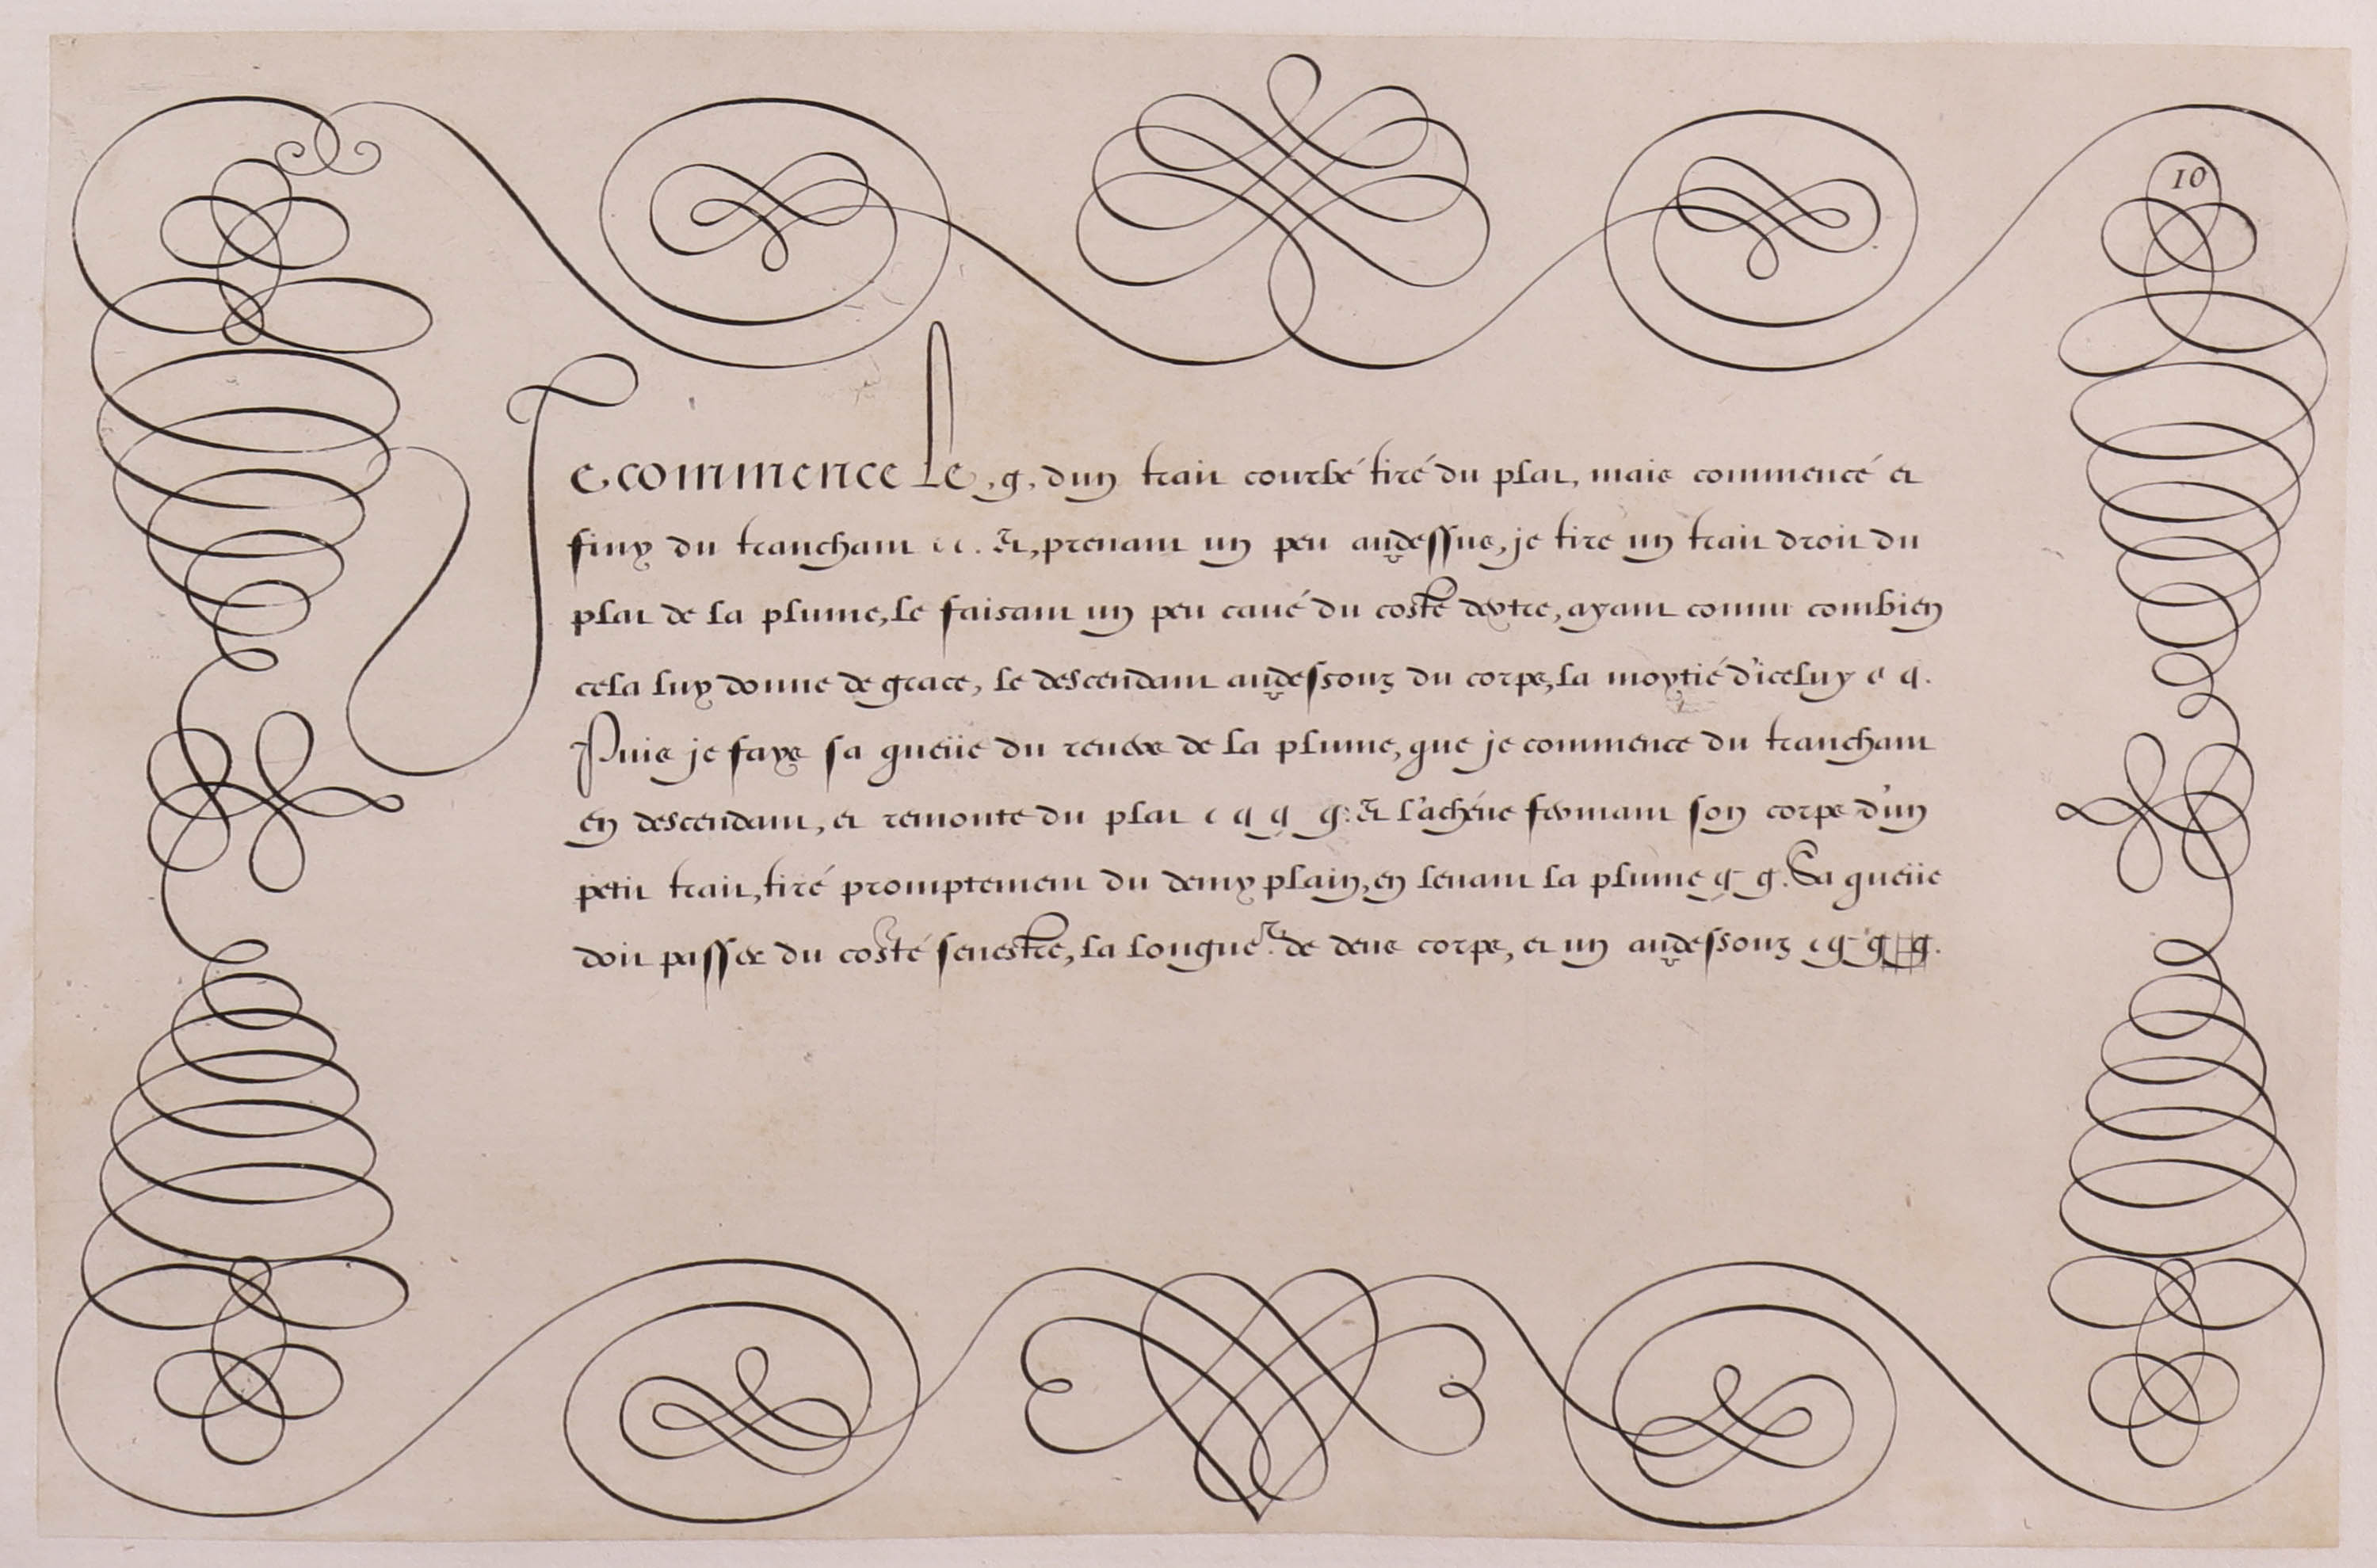 10
Je commence le .g. dun trait courbé tiré du plat, mais commencé et
finy du tranchant ι c. Et, prenant un peu au dessus, je tire un trait droit du
plat de la plume, le faisant un peu caué du costé dextre, ayant connu combien
cela luy donne de grace, le descendant au dessouz du corps, la moytié d'iceluy c q.
Puis je fays sa queüe du reuers de la plume, que je commence du tranchant
en descendant, et remonte du plat c q q g: Et l'achéue fermant son corps d'un
petit trait, tiré promptement du demy plain, en leuant la plume g g. Sa queüe
doit passer du costé senestre, la longueur de deus corps, et un au dessouz c g g g.